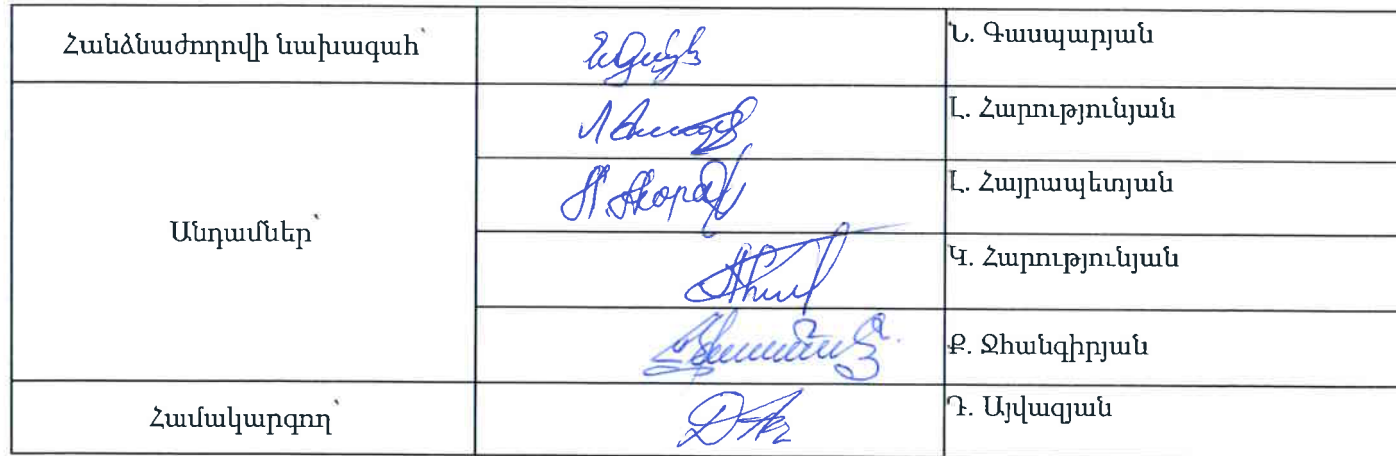 Հանձնաժողովի նախագահ՝
Ն. Գասպարյան
Լ. Հարությունյան
Լ. Հայրապետյան
Անդամներ՝
Կ. Հարությունյան
Ք. Ջհանգիրյան
Համակարգող՝
Դ. Այվազյան